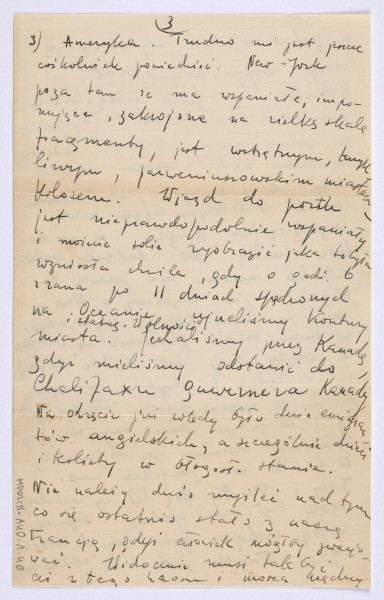 3
3) Ameryka. Trudno mi jest jeszcze
cośkolwiek powiedzieć. New-York
poza tem że ma wspaniałe, impo-
nujące, zakrojone na wielką skalę
fragmenty, jest wstrętnym,
liwym, parweniuszowskim miastem
kolosem. Wjazd do portu
jest nieprawdopodobnie wspaniały
i możcie sobie wyobrazić jaka to była
wzniosła chwila, gdy o godz. 6
z rana po 11 dniach spędzonych
na Oceanie, ujrzeliśmy kontury
i statuę Wolności
miasta. Jechaliśmy przez Kanadę,
gdyż mieliśmy odstawić do
Chalifaxu guwernera Kanady
Na okręcie już wtedy było dużo emigran
tów angielskich, a szczególnie dzieci
i kobiety w błogosł. stanie.
Nie należy dużo myśleć nad tym
co się ostatnio stało z naszą
Francją, gdyż człowiek mógłby zwarjo-
wać. Widocznie musi tak być i
z tego chaosu i morza